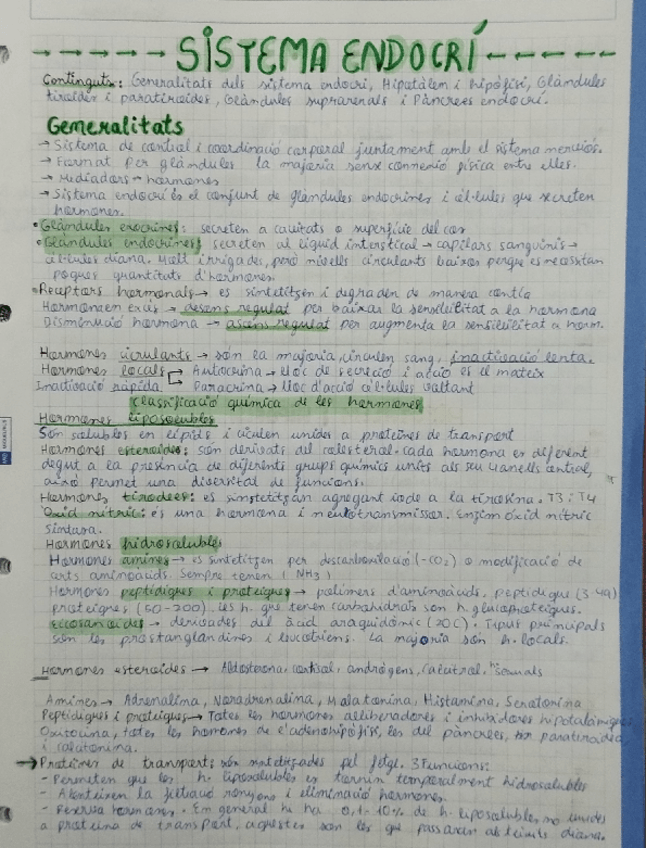 SISTEMA ENDOCRÍ
Continguts: Generalitats dels sistema endocrí, Hipotàlem i hipòfisi, Glàndules
tiroïdes i paratiroides, Glàndules suprarenals i Pàncrees endocrí.
Generalitats
→ Sistema de control i coordinació corporal juntament amb el sistema nerviós.
→ Format per glàndules la majoria sense connexió física entre elles.
→ Mediadors → hormones
→ Sistema endocrí és el conjunt de glàndules endocrines i cèl·lules que secreten
hormones.
• Glàndules exocrines: secreten a cavitats o superfície del cos
• Glàndules endocrines: secreten al líquid interstical → capilars sanguinis →
cèl·lules diana. Molt irrigades, però nivells circulants baixos perque es necessitan
poques quantitats d'hormones.
• Receptors hormonals → es sintetitzen i degraden de manera contía
Hormona en excés → descens regulat per baixar la sensibilitat a la hormona
Disminució hormona → ascens regulat per augmenta la sensibilitat a horm.
Hormones circulants → són la majoria, circulen sang, inactivació lenta.
Hormones locals Autocrina → lloc de secreció i acció és el mateix
Inactivació ràpida. Paracrina → lloc d'acció cèl·lules voltant
Classificació química de les hormones
Hormones liposolubles
Són solubles en lípids i ciculen unides a proteïnes de transport
Hormones esteroides: són derivats del colesterol. cada hormona es diferent
degut a la presència de diferents grups químics units als seu 4 anells central,
això permet una diversitat de funcions.
Hormones tiroidees: es sintetitzan agregant iode a la tirosina. T3 i T4
Oxid nítric: és una hormona i neurotransmissor. Enzim òxid nítric
sintasa.
Hormones hidrosolubles
Hormones amines → es sintetitzen per descarboxilació (-CO₂) o modificació de
certs aminoàcids. Sempre tenen (NH₃)
Hormones peptídiques i proteiques → polímers d'aminoàcids. Peptídique (3-49)
proteiques (50-200). Les h. que tenen carbohidrats son h. glucoproteiques.
Eicosanoides → derivades del àcid araquidònic (20C). Tipus principals
són les prostanglandines i leucotriens. La majoria són h. locals.
Hormones esteroides → Aldosterona, cortisol, andrògens, calcitrol, h. sexuals
Amines → Adrenalina, Noradrenalina, Malatonina, Histamina, Serotonina
Peptídiques i proteiques → Totes les hormones alliberadores i inhibidores hipotalàmiques
Oxitocina, totes les hormones de l'adenohipòfisi, les del pàncrees, h. paratiroidea
i calcitonina.
→ Proteïnes de transport: són sintetitzades pel fetge. 3 Funcions:
- Permeten que les h. liposolubles es tornin temporalment hidrosolubles
- Alenteixen la filtració ronyons i eliminació hormones.
- Reserva hormones. En general hi ha 0,1-10% de h. liposolubles no unides
a proteïna de transport, aquestes són les que passaran als teixits diana.